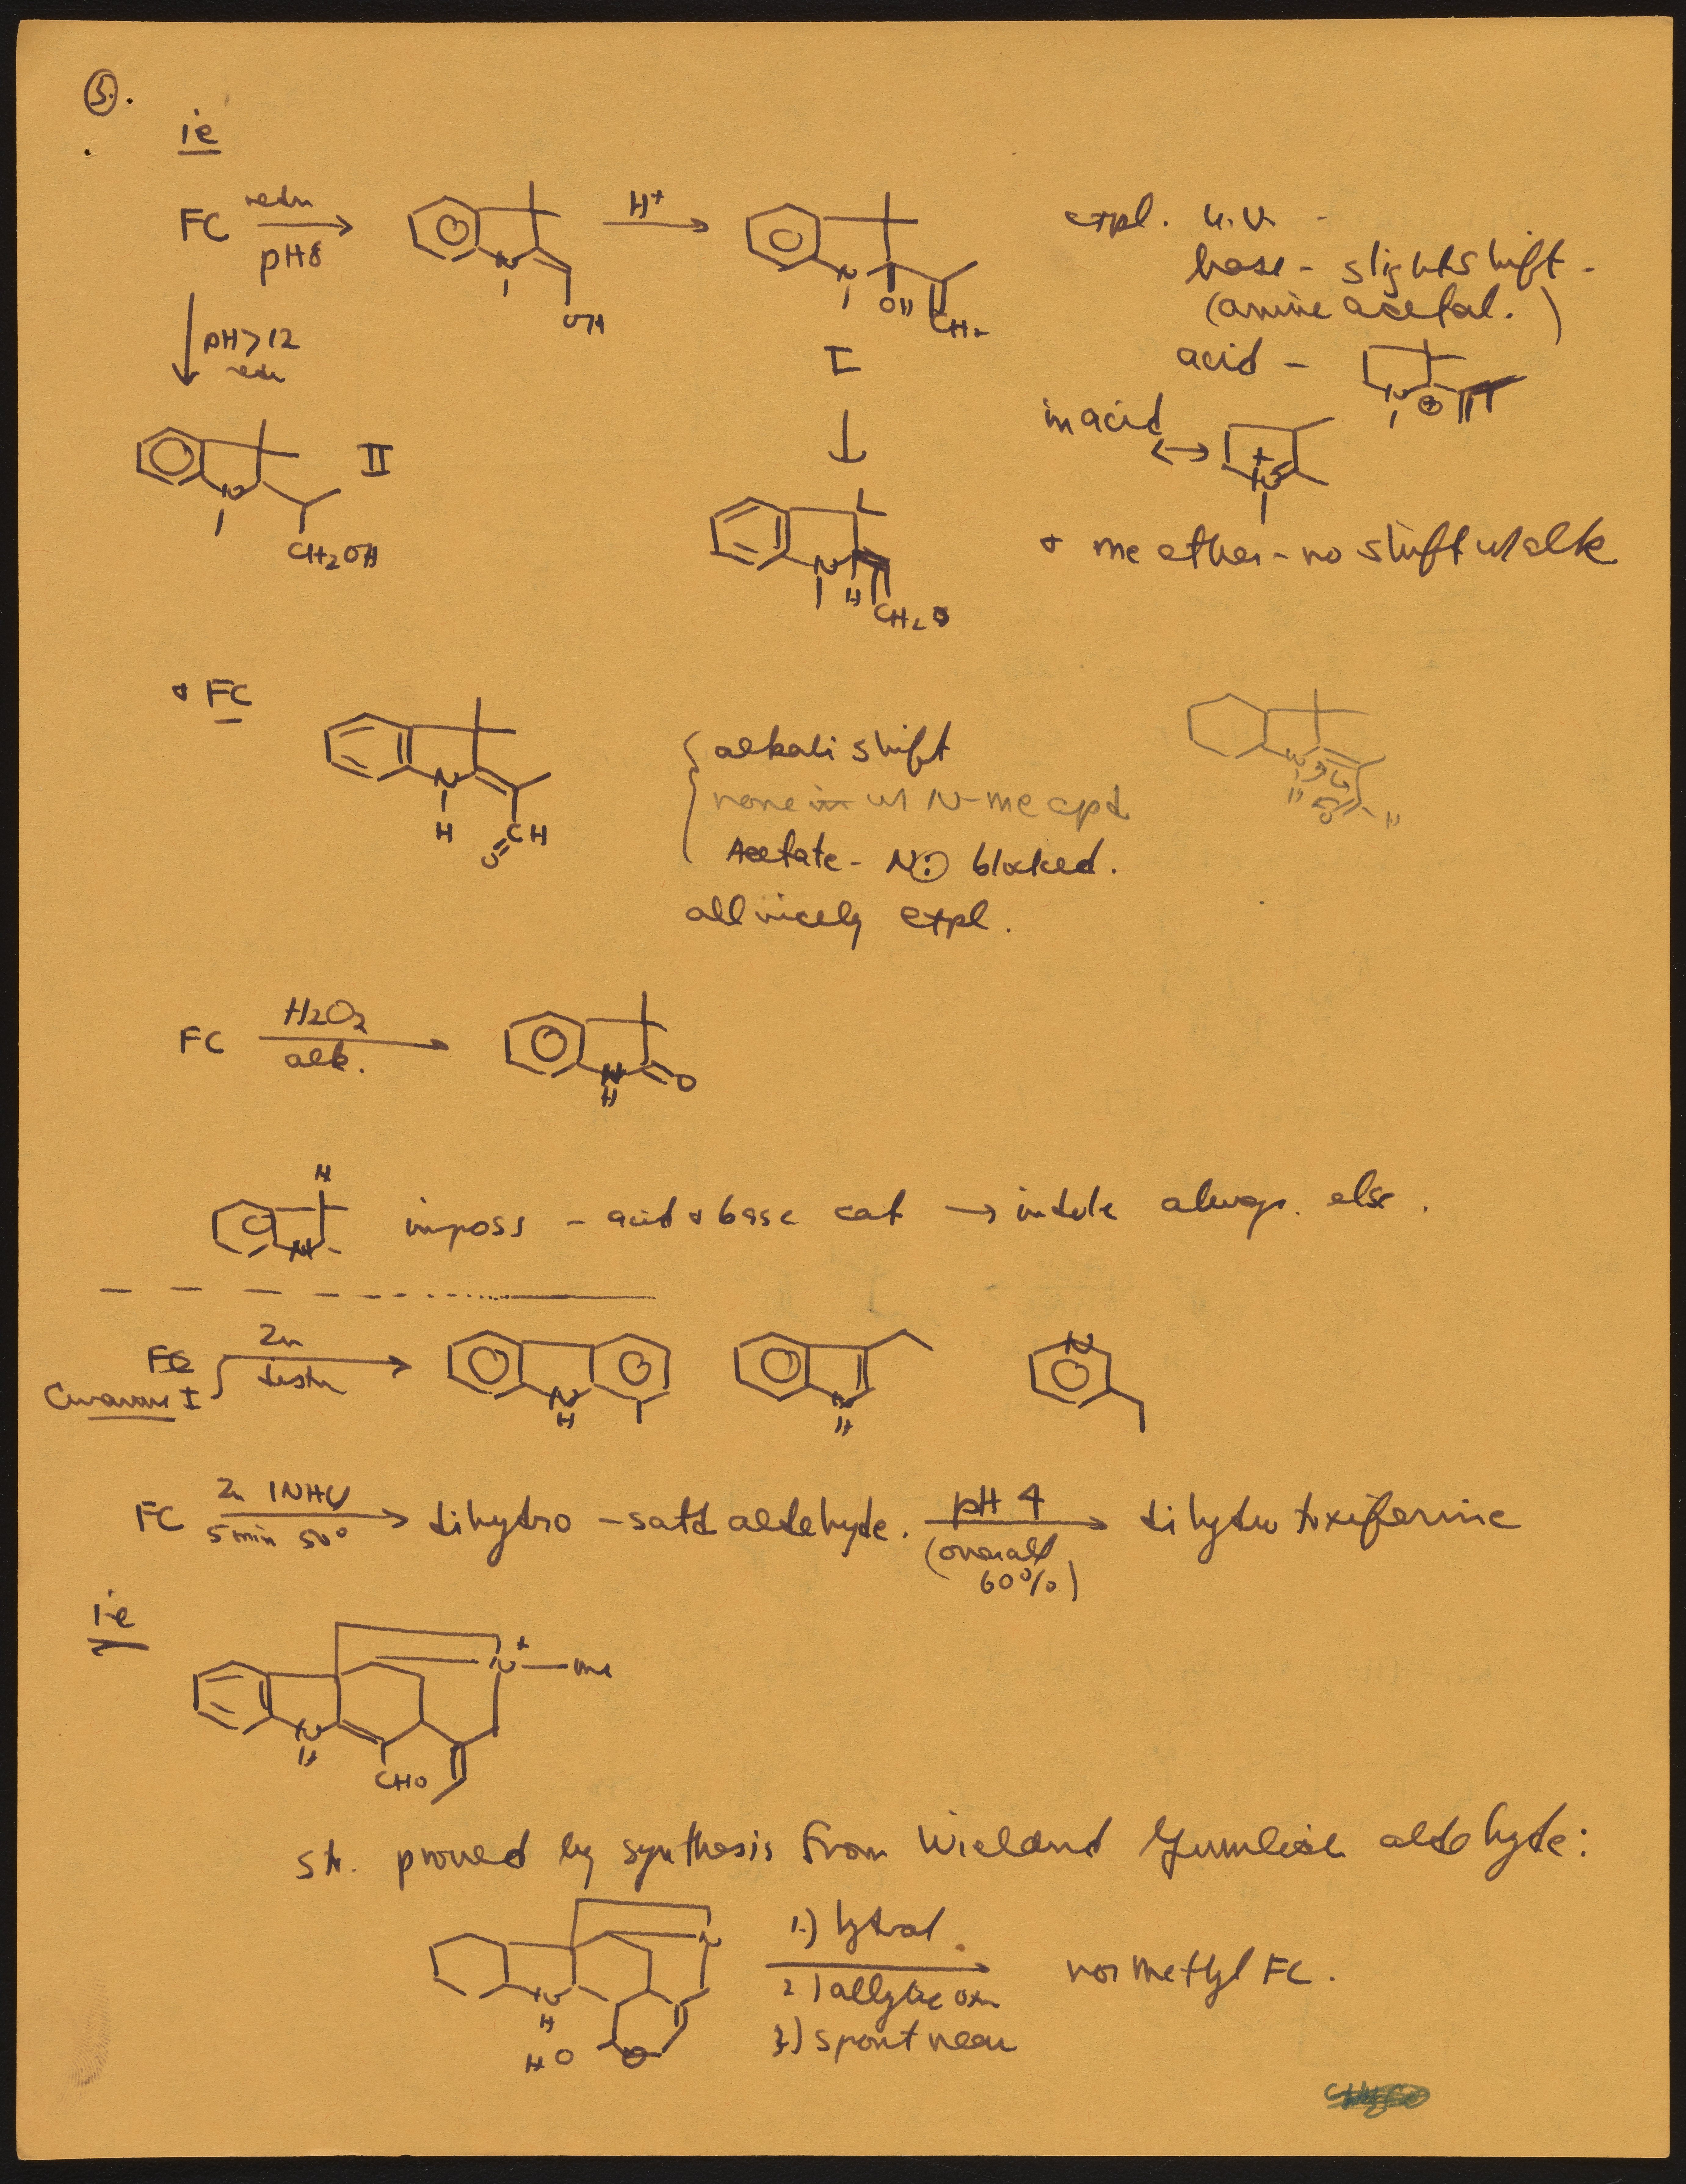 5.
ie
FC redn pH8
H+
OH
N
OH
CH2
I
expl. u.v. -
base - slight shift -
(amine acetal.)
acid -
in acid
↔
+ me ether - no shift w alk
pH>12
redn
II
N
CH2OH
N
H
CH2
+ FC
N
H
CH
O
alkali shift
none in w N-me cpd
Acetate - N: blocked.
all nicely expl.
FC H2O2 alk.
N
H
O
H
N
imposs - acid + base cat → indole always. else.
FC
Curarine I
Zn
distn
N
H
N
H
N
FC Zn 1NHCl 5 min 50° → dihydro - satd aldehyde. pH 4 (overall 60%) → dihydro toxiferine
ie
N+—Me
N
H
CHO
str. proved by synthesis from Wieland Gumlich aldehyde:
N
N
H
HO
O
1.)
2.) allylic oxn
3.) spont rearr
nor methyl FC.